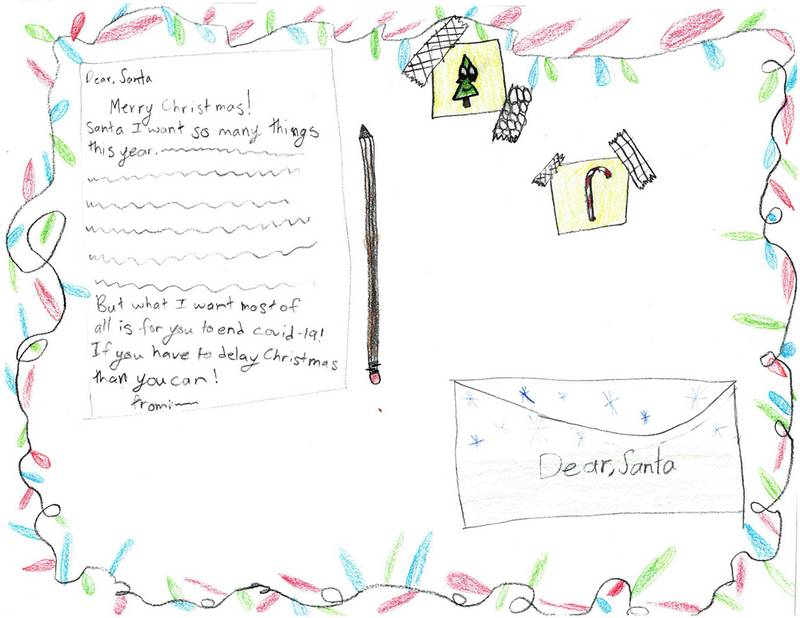 Dear, Santa
Merry Christmas!
Santa I want so many things
this year.
But what I want most of
all is for you to end covid-19!
If you have to delay Christmas
than you can!
from:
Dear, Santa